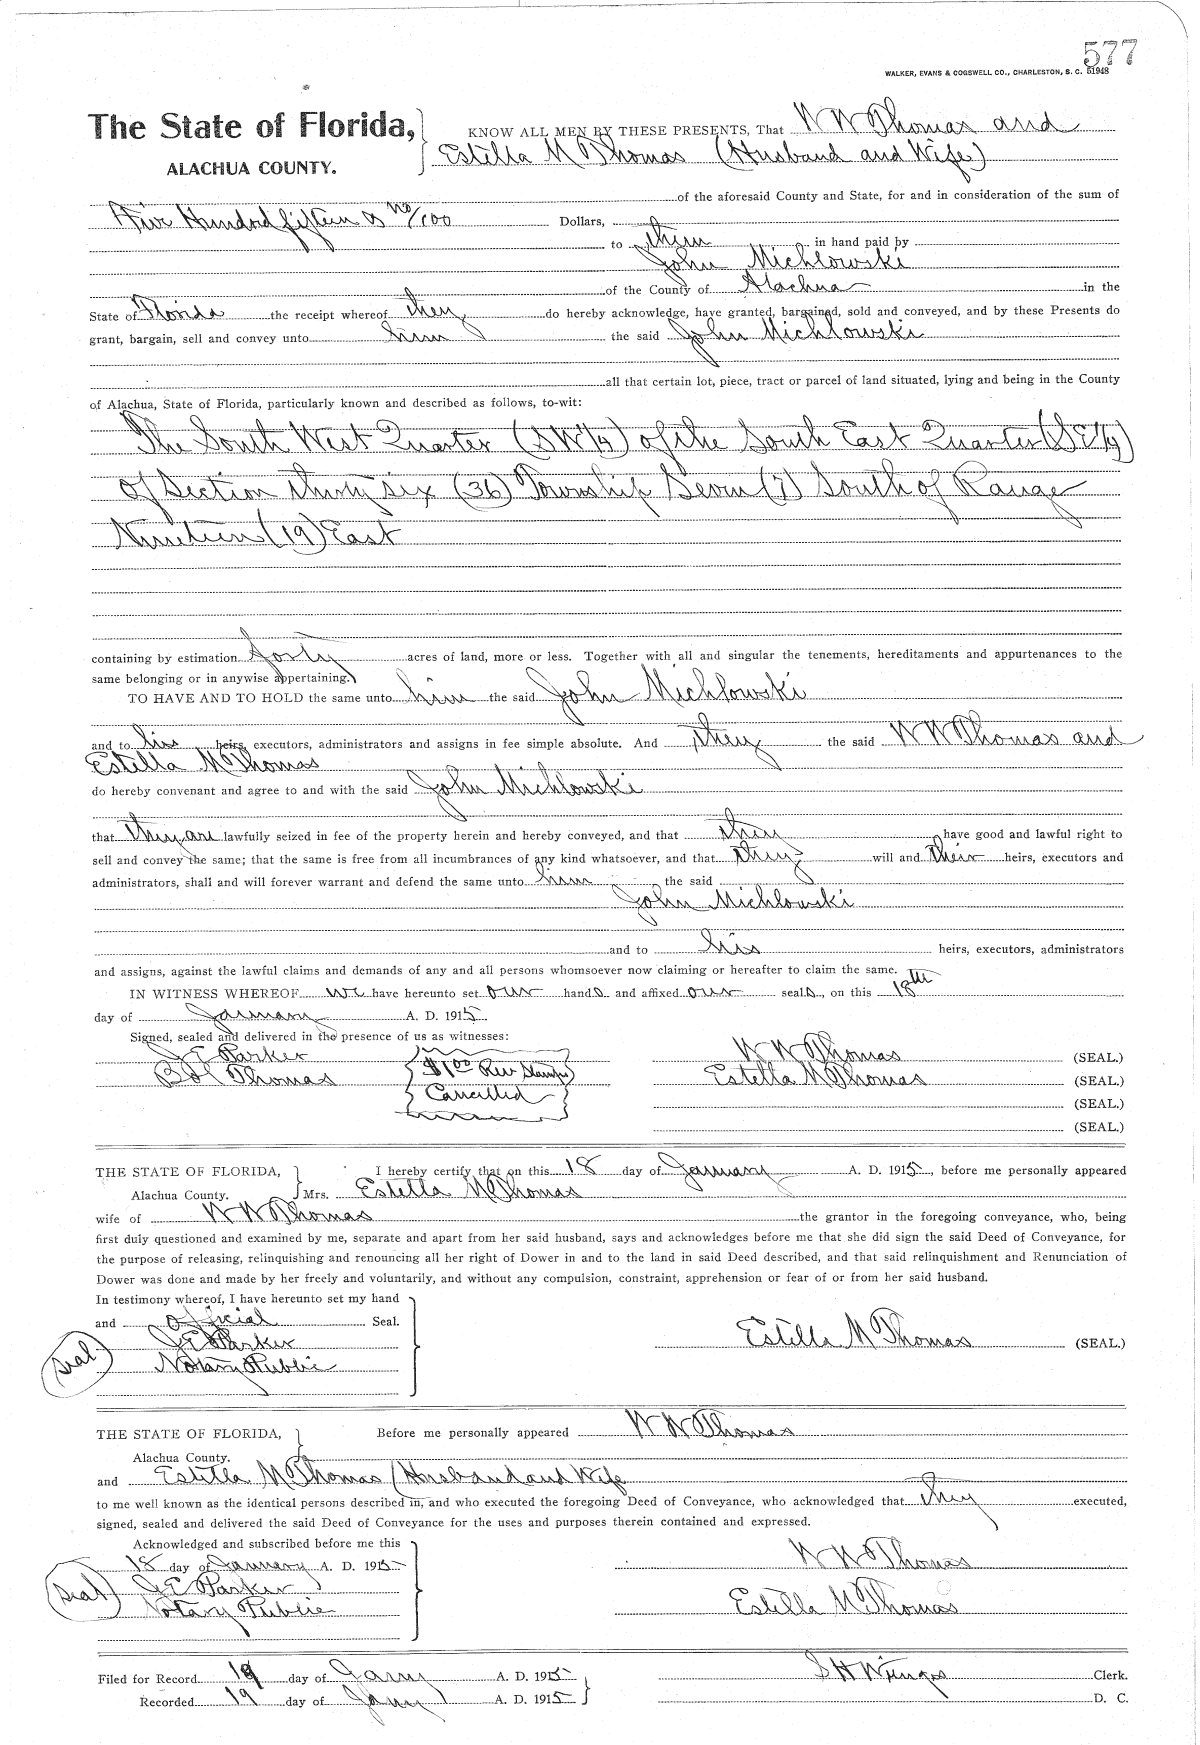 577
WALKER, EVANS & COGSWELL CO., CHARLESTON, S. C. 51948
The State of Florida,
ALACHUA COUNTY.
KNOW ALL MEN BY THESE PRESENTS, That W W Thomas and
Estella M Thomas (Husband and Wife)
of the aforesaid County and State, for and in consideration of the sum of
Five Hundred fifteen & no/100 Dollars,
to them in hand paid by
John Michlowski
of the County of Alachua in the
State of Florida the receipt whereof they do hereby acknowledge, have granted, bargained, sold and conveyed, and by these Presents do
grant, bargain, sell and convey unto him the said John Michlowski
all that certain lot, piece, tract or parcel of land situated, lying and being in the County
of Alachua, State of Florida, particularly known and described as follows, to-wit:
The South West Quarter (SW1/4) of the South East Quarter (SE1/4)
of Section thirty six (36) Township Seven (7) South of Range
Nineteen (19) East
containing by estimation forty acres of land, more or less. Together with all and singular the tenements, hereditaments and appurtenances to the
same belonging or in anywise appertaining.
TO HAVE AND TO HOLD the same unto him the said John Michlowski
and to his heirs, executors, administrators and assigns in fee simple absolute. And they the said W W Thomas and
Estella M Thomas
do hereby convenant and agree to and with the said John Michlowski
that they are lawfully seized in fee of the property herein and hereby conveyed, and that they have good and lawful right to
sell and convey the same; that the same is free from all incumbrances of any kind whatsoever, and that they will and their heirs, executors and
administrators, shall and will forever warrant and defend the same unto him the said
John Michlowski
and to his heirs, executors, administrators
and assigns, against the lawful claims and demands of any and all persons whomsoever now claiming or hereafter to claim the same.
IN WITNESS WHEREOF we have hereunto set our hands and affixed our seals, on this 18th
day of January A. D. 1915
Signed, sealed and delivered in the presence of us as witnesses:
J E Parker
Thomas
$1.00 Rev Stamps
Cancelled
W W Thomas (SEAL.)
Estella M Thomas (SEAL.)
(SEAL.)
(SEAL.)
THE STATE OF FLORIDA,
Alachua County.
I hereby certify that on this 18 day of January A. D. 1915, before me personally appeared
Mrs. Estella M Thomas
wife of W W Thomas the grantor in the foregoing conveyance, who, being
first duly questioned and examined by me, separate and apart from her said husband, says and acknowledges before me that she did sign the said Deed of Conveyance, for
the purpose of releasing, relinquishing and renouncing all her right of Dower in and to the land in said Deed described, and that said relinquishment and Renunciation of
Dower was done and made by her freely and voluntarily, and without any compulsion, constraint, apprehension or fear of or from her said husband.
In testimony whereof, I have hereunto set my hand
and official Seal.
J E Parker
Notary Public
Seal
Estella M Thomas (SEAL.)
THE STATE OF FLORIDA,
Alachua County.
Before me personally appeared W W Thomas
and Estella M Thomas (Husband and Wife
to me well known as the identical persons described in, and who executed the foregoing Deed of Conveyance, who acknowledged that they executed,
signed, sealed and delivered the said Deed of Conveyance for the uses and purposes therein contained and expressed.
Acknowledged and subscribed before me this
18 day of January A. D. 1915
J E Parker
Notary Public
Seal
W W Thomas
Estella M Thomas
Filed for Record 19 day of Jany A. D. 1915
Recorded 19 day of Jany A. D. 1915
S H Wienges Clerk.
D. C.